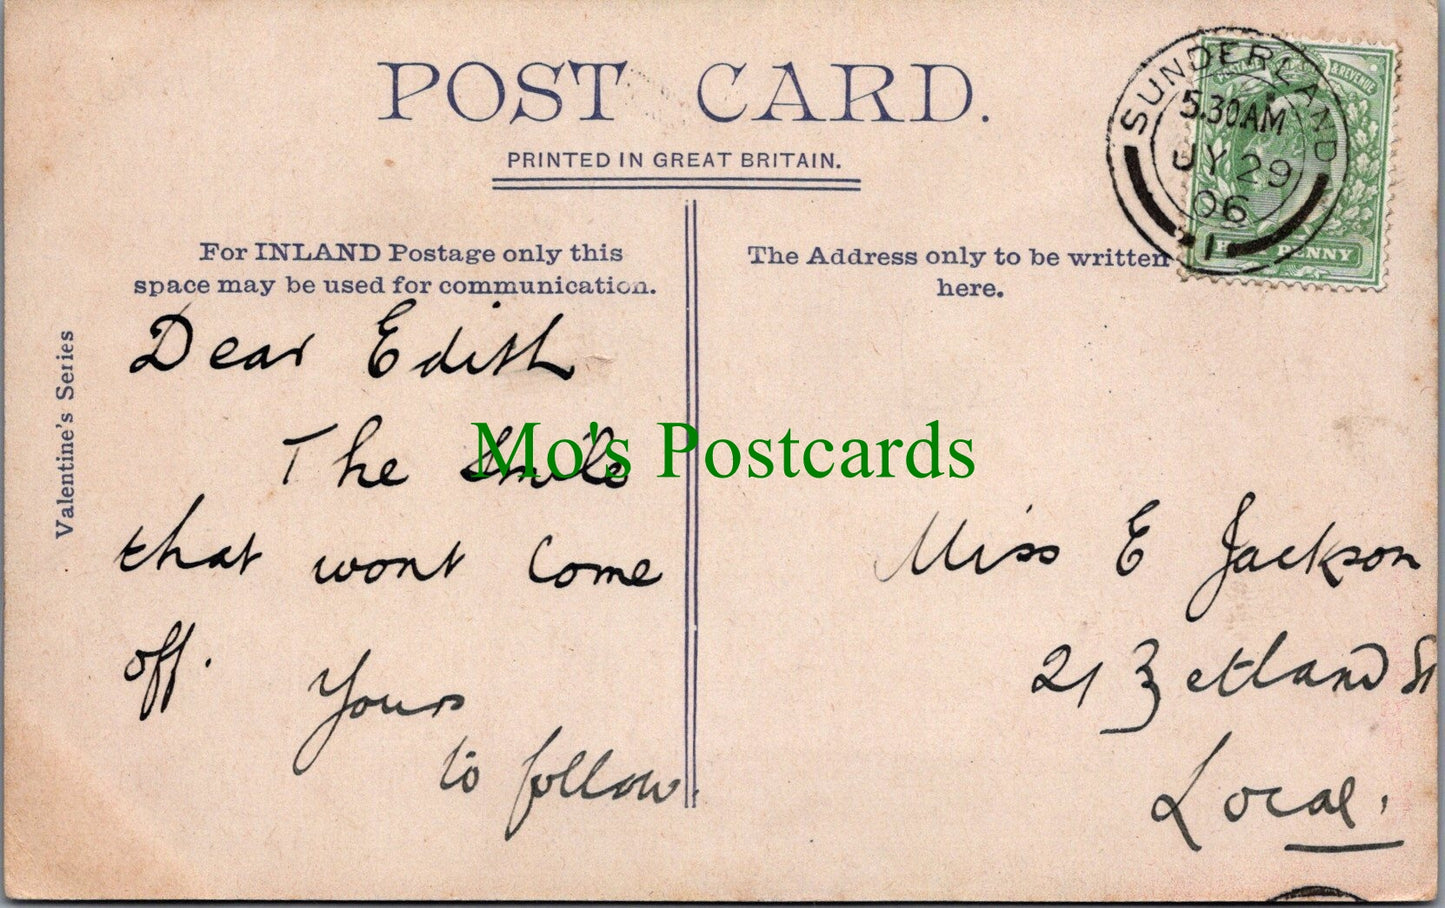 POST CARD.
PRINTED IN GREAT BRITAIN.
For INLAND Postage only this
space may be used for communication.
The Address only to be written
here.
SUNDERLAND
5.30AM
JY 29
06
1
& REVENUE
HALFPENNY
Valentine's Series
Dear Edith
The Smile
that wont Come
off.
Yours
to follow.
Mo's Postcards
Miss E Jackson
21 Zetland St
Local.